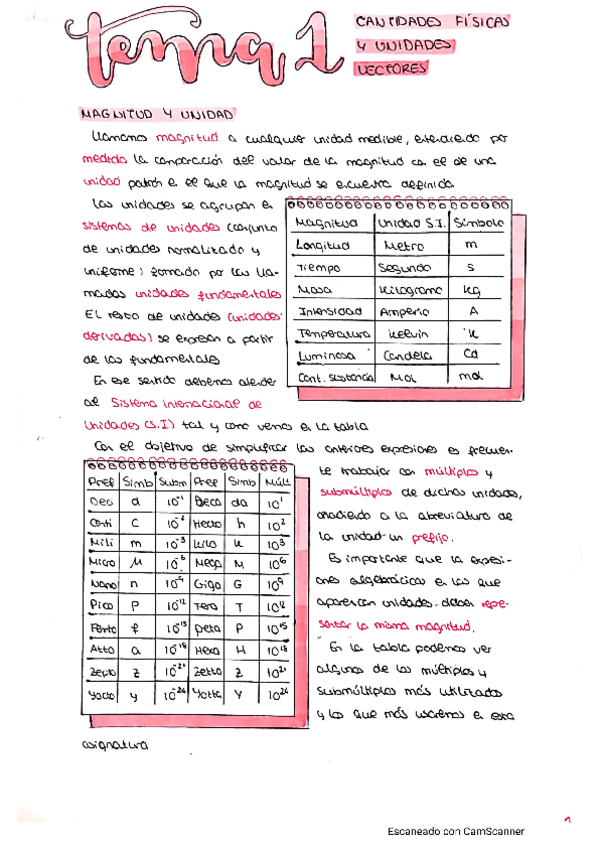 tema 1
CANTIDADES FÍSICAS
Y UNIDADES
VECTORES
MAGNITUD Y UNIDAD
Llamamos magnitud a cualquier unidad medible, entendiendo por
medida la comparación del valor de la magnitud con el de una
unidad patrón en el que la magnitud se encuentra definida
Las unidades se agrupan en
sistemas de unidades (conjunto
de unidades normalizado y
uniforme) formado por las lla-
madas unidades fundamentales
El resto de unidades (unidades
derivadas) se expresan a partir
de las fundamentales
En ese sentido debemos atender
al Sistema internacional de
Unidades (S.I) tal y como vemos en la tabla
Magnitud Unidad S.I. Símbolo
Longitud Metro m
Tiempo Segundo s
Masa Kilogramo kg
Intensidad Amperio A
Temperatura Kelvin K
Luminosa Candela Cd
Cant. sustancia Mol mol
Con el objetivo de simplificar las anteriores expresiones es frecuen-
te trabajar con múltiplos y
submúltiplos de dichas unidades,
añadiendo a la abreviatura de
la unidad un prefijo.
Es importante que la expresi-
ones algebráicas en las que
aparezcan unidades deben repe-
sentar la misma magnitud.
En la tabla podemos ver
algunos de los múltiplos y
submúltiplos más utilizados
y los que más usaremos en esta
asignatura
Pref Simb Subm Pref Simb Múlt
Deci d 10⁻¹ Deca da 10¹
Centi C 10⁻² Hecto h 10²
Mili m 10⁻³ Kilo K 10³
Micro μ 10⁻⁶ Mega M 10⁶
Nano n 10⁻⁹ Giga G 10⁹
Pico p 10⁻¹² Tera T 10¹²
Femto f 10⁻¹⁵ peta P 10¹⁵
Atto a 10⁻¹⁸ Hexa H 10¹⁸
Zepto z 10⁻²¹ Zetto z 10²¹
Yocto y 10⁻²⁴ Yotta Y 10²⁴
1
Escaneado con CamScanner